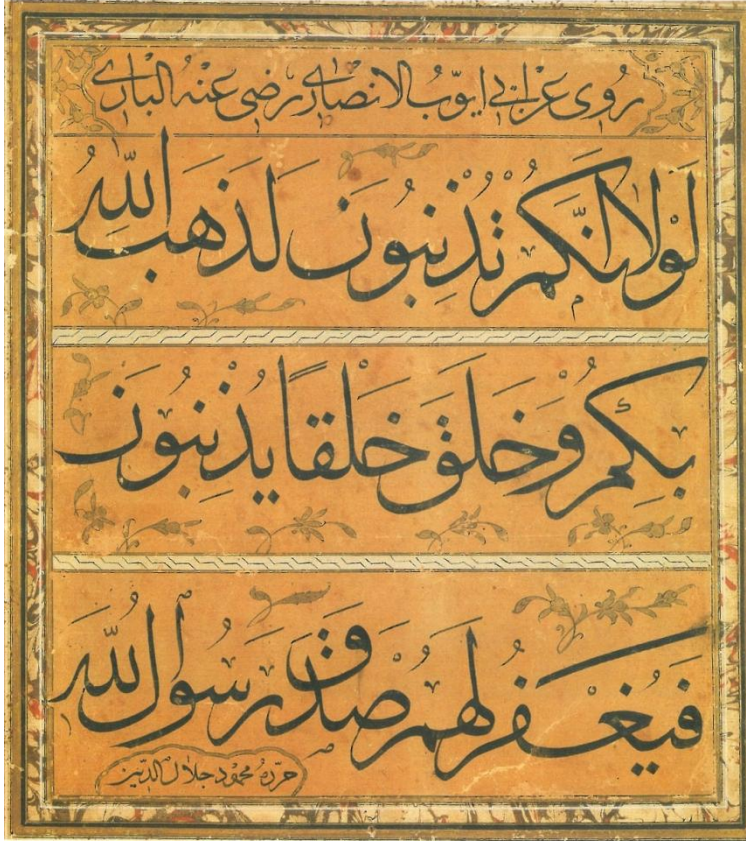 روى عن ابي ايوب الانصاري رضى عنه الباري
لَوْلَا اَنَّكُمْ تُذْنِبُونَ لَذَهَبَ اللّٰهُ
بِكُمْ وَخَلَقَ خَلْقًا يُذْنِبُونَ
فَيَغْفِرُ لَهُمْ صَدَقَ رَسُولُ اللّٰهِ
حرره محمود جلال الدين